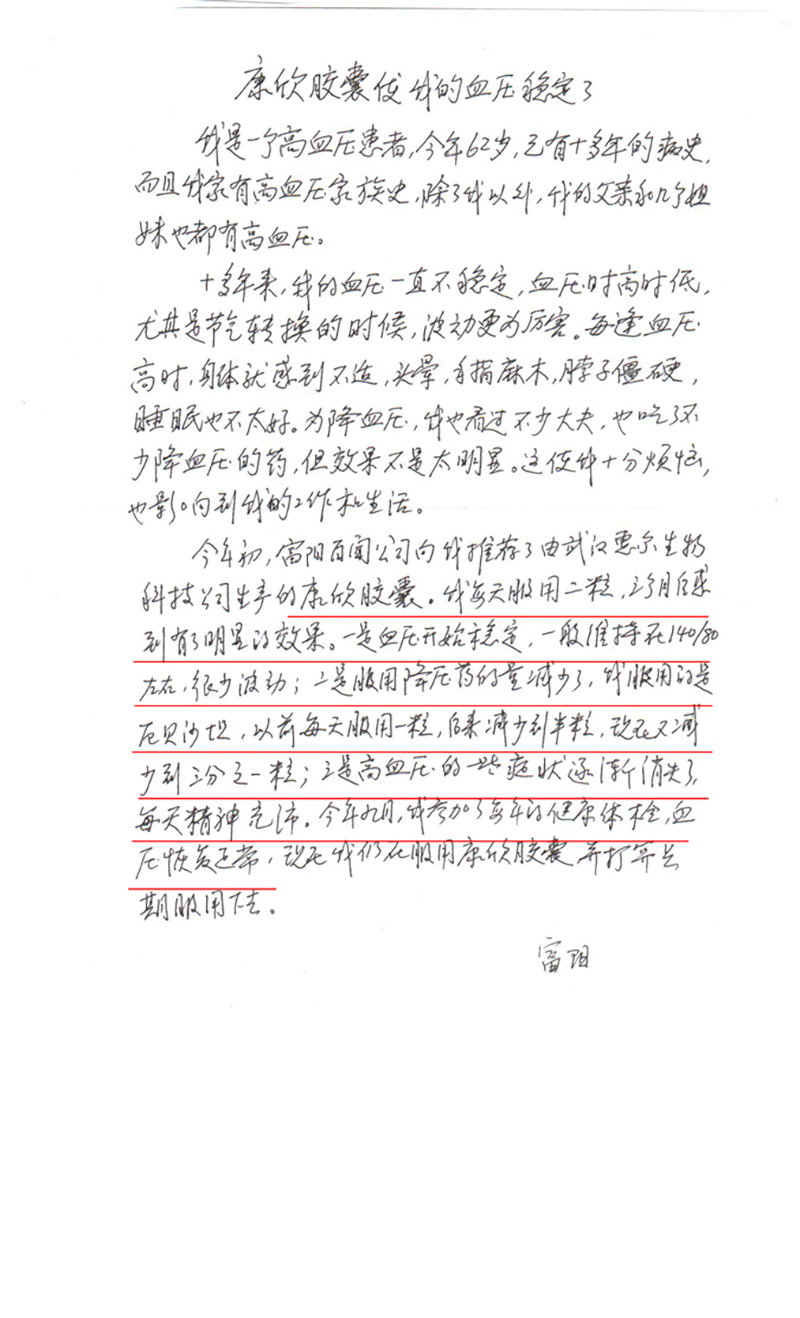 康欣胶囊使我的血压稳定了
我是一个高血压患者，今年62岁，已有十多年的病史，
而且我家有高血压家族史，除了我以外，我的父亲和几个姐
妹也都有高血压。
十多年来，我的血压一直不稳定，血压时高时低，
尤其是节气转换的时候，波动更为厉害。每逢血压
高时，身体就感到不适，头晕，手指麻木，脖子僵硬，
睡眠也不太好。为降血压，我也看过不少大夫，也吃了不
少降血压的药，但效果不是太明显。这使我十分烦恼，
也影响到我的工作和生活。
今年初，富阳百闻公司向我推荐了由武汉惠尔生物
科技公司生产的康欣胶囊。我每天服用二粒，三个月后感
到有了明显的效果。一是血压开始稳定，一般维持在140/80
左右，很少波动；二是服用降压药的量减少了，我服用的是
厄贝沙坦，以前每天服用一粒，后来减少到半粒，现在又减
少到三分之一粒；三是高血压的一些症状逐渐消失了，
每天精神充沛。今年九月，我参加了每年的健康体检，血
压恢复正常，现在我仍在服用康欣胶囊并打算长
期服用下去。
富阳